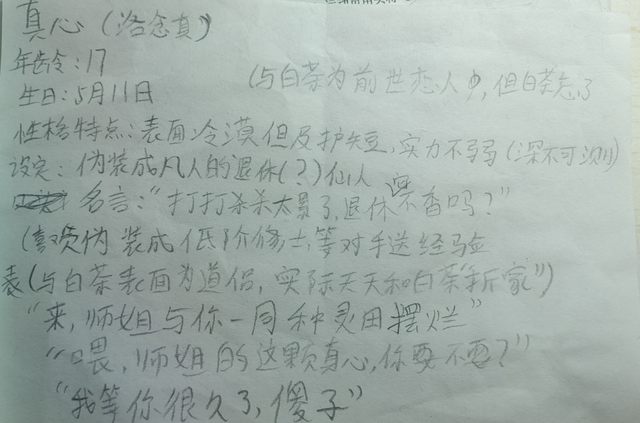 真心(洛念真)
年龄:17
(与白茶为前世恋人,但白茶忘了
生日:5月11日
性格特点:表面冷漠但及护短,实力不弱(深不可测)
设定:伪装成凡人的退休(?)仙人
名言:"打打杀杀太累了,退休不香吗?"
(喜欢伪装成低阶修士,等对手送经验
表(与白茶表面为道侣,实际天天和白茶"拆家")
"来,师姐与你一同种灵田摆烂"
"喂,师姐的这颗真心,你要不要?"
"我等你很久了,傻子"